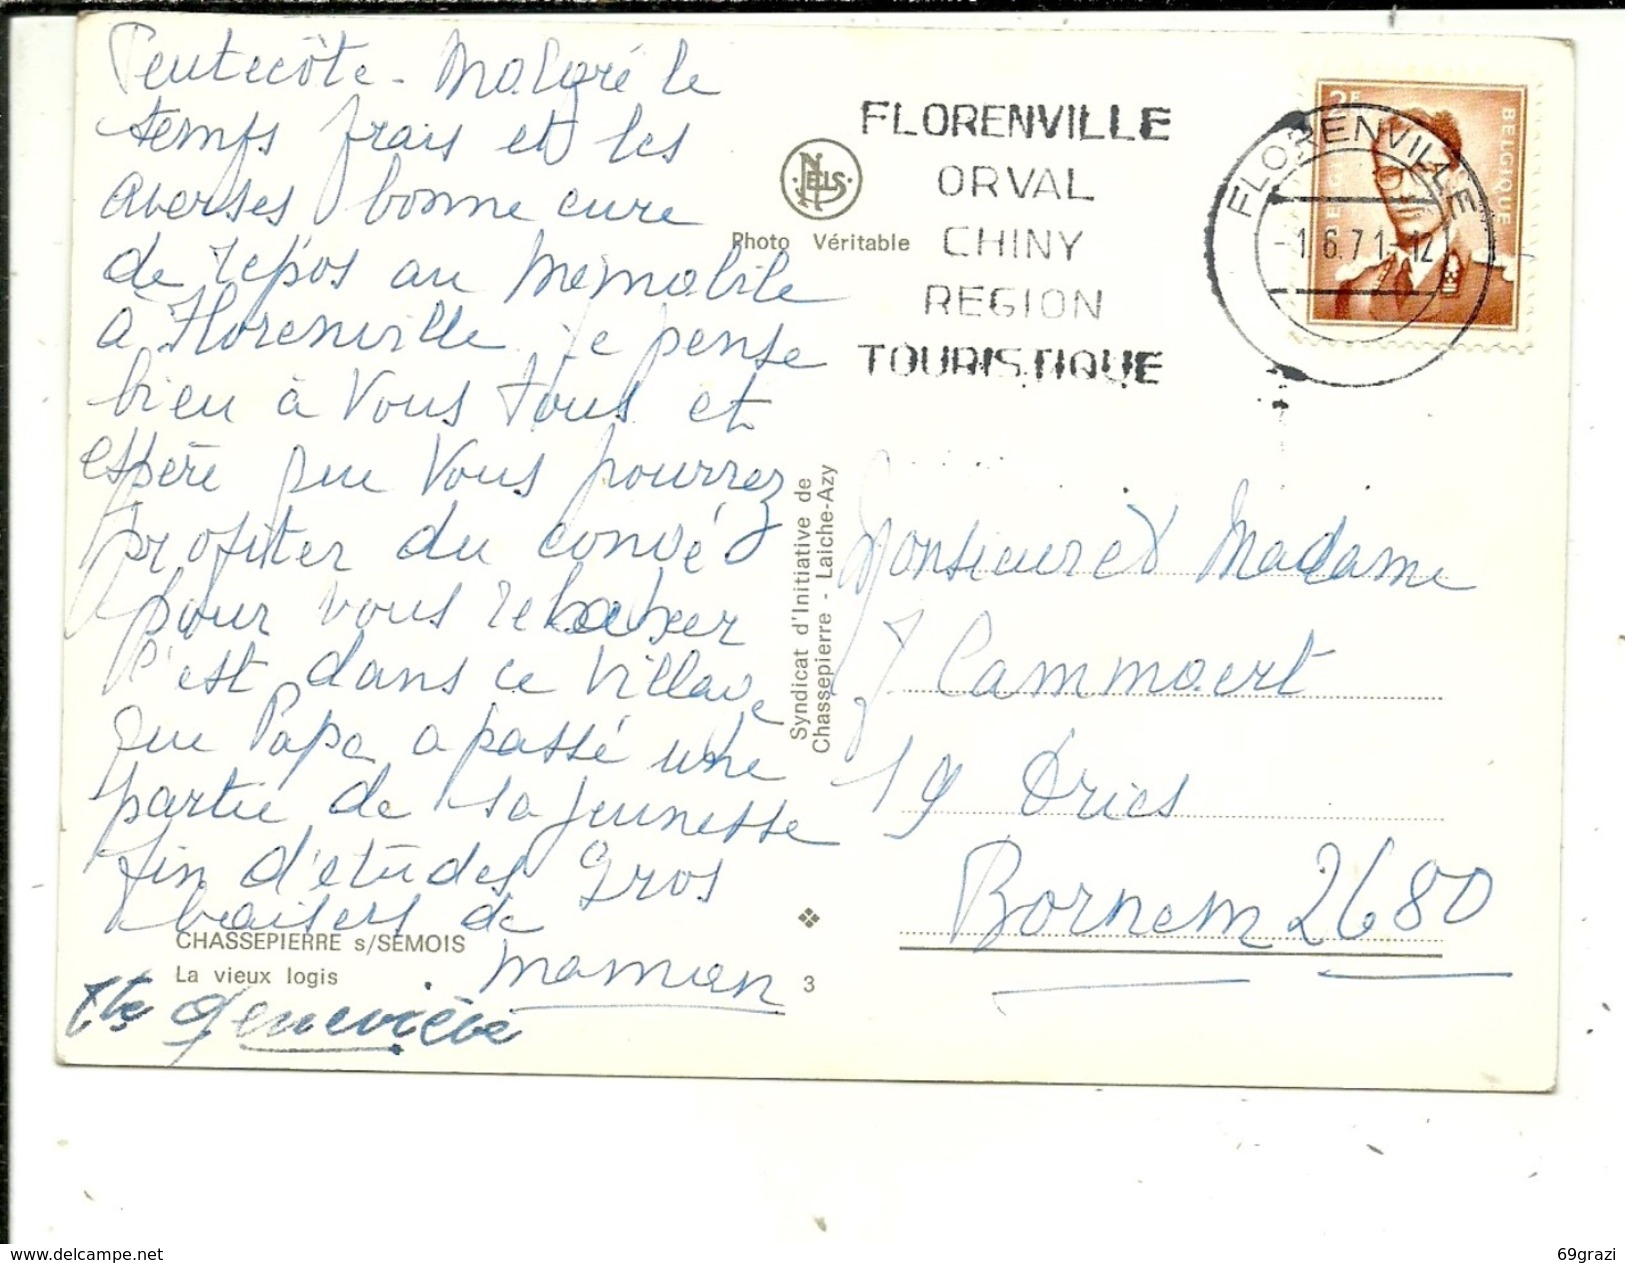 Pentecôte - Malgré le
temps frais et les
averses bonne cure
de repos au Memobile
à Florenville. Je pense
bien à Vous tous et
espère que Vous pourrez
profiter du congé
pour vous relaxer
C'est dans ce Village
que Papa a passé une
partie de sa jeunesse
fin d'études Gros
baisers de
maman
Tte Geneviève
CHASSEPIERRE s/SEMOIS
La vieux logis
3
NELS
Photo Véritable
Syndicat d'Initiative de
Chassepierre - Laiche-Azy
FLORENVILLE
ORVAL
CHINY
REGION
TOURISTIQUE
FLORENVILLE
-1.6.71-12
BELGIQUE
Monsieur et Madame
J Cammaert
19 Dries
Bornem 2680
www.delcampe.net
69grazi